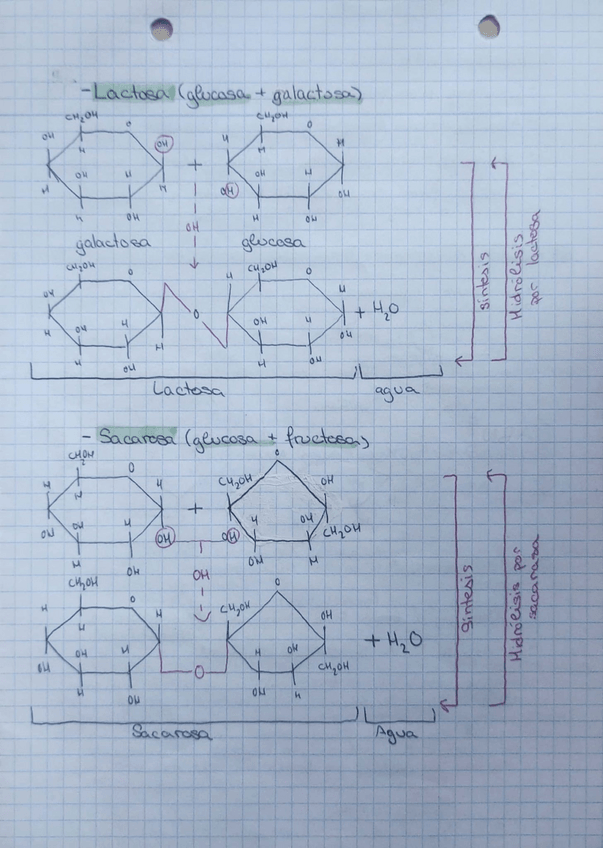 - Lactosa (glucosa + galactosa)
CH₂OH O CH₂OH O
OH H OH + H H H
H OH H H OH OH H OH
H OH H OH
OH
galactosa glucosa
CH₂OH O H CH₂OH O
OH H O H H + H₂O
OH H H OH H OH
H OH H OH
Lactosa agua
síntesis
Hidrólisis
por lactosa
- Sacarosa (glucosa + fructosa)
CH₂OH O H O
H H + CH₂OH OH
OH OH H OH OH H OH CH₂OH
H OH OH H
OH
CH₂OH O O
H H H CH₂OH OH
OH OH H + H₂O
H OH O H OH CH₂OH
OH H
Sacarosa Agua
Síntesis
Hidrólisis por
sacarasa